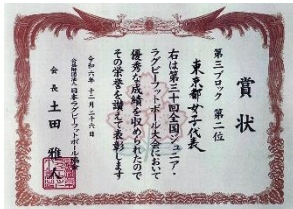 賞状
第三ブロック 第二位
東京都女子代表
右は第三十回全国ジュニア・
ラグビーフットボール大会において
優秀な成績を収められたので
その栄誉を讃えて表彰します
令和六年十二月二十六日
公益財団法人日本ラグビーフットボール協会
会長 土田雅人